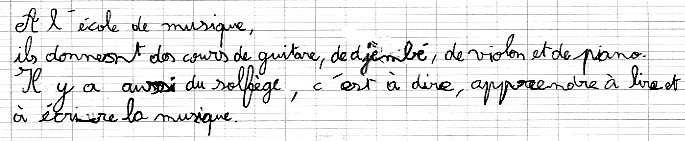 A l'école de musique,
ils donnent des cours de guitare, de djèmbé, de violon et de piano.
Il y a aussi du solfège, c'est à dire, apprendre à lire et
à écrire la musique.